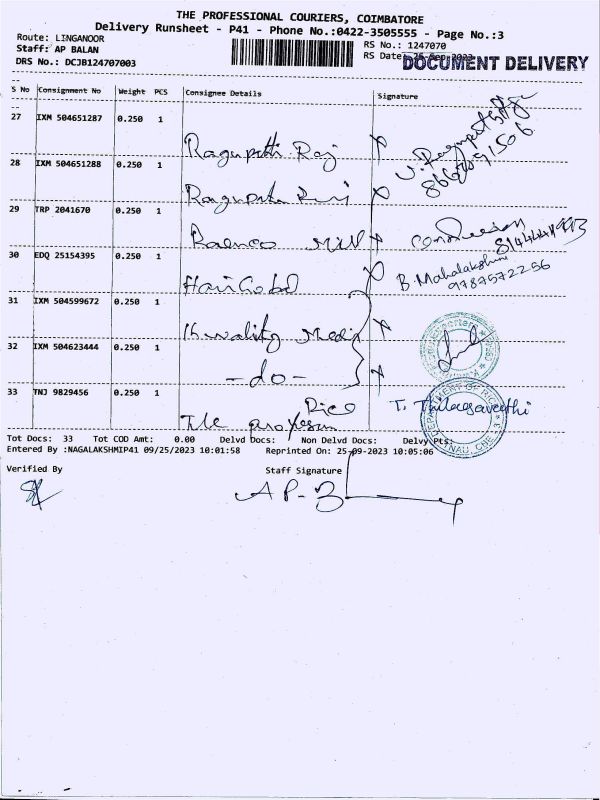 THE PROFESSIONAL COURIERS, COIMBATORE
Delivery Runsheet - P41 - Phone No.:0422-3505555 - Page No.:3
Route: LINGANOOR
RS No.: 1247070
Staff: AP BALAN
RS Date: 25-Sep-2023
DOCUMENT DELIVERY
DRS No.: DCJB124707003
S No Consignment No Weight PCS Consignee Details Signature
27 IXM 504651287 0.250 1
Ragupathi Raj
28 IXM 504651288 0.250 1
8667091506
29 TRP 2041670 0.250 1
Mill
30 EDQ 25154395 0.250 1
B. Mahalakshmi
9787572256
31 IXM 504599672 0.250 1
Kwality
32 IXM 504623444 0.250 1
-do-
33 TNJ 9829456 0.250 1
Rice T. Thilagaveethi
The professor
DEPARTMENT OF RICE
TNAU, CBE-3
Tot Docs: 33 Tot COD Amt: 0.00 Delvd Docs: Non Delvd Docs: Delvy Pts:
Entered By :NAGALAKSHMIP41 09/25/2023 10:01:58 Reprinted On: 25-09-2023 10:05:06
Verified By Staff Signature
A P - B